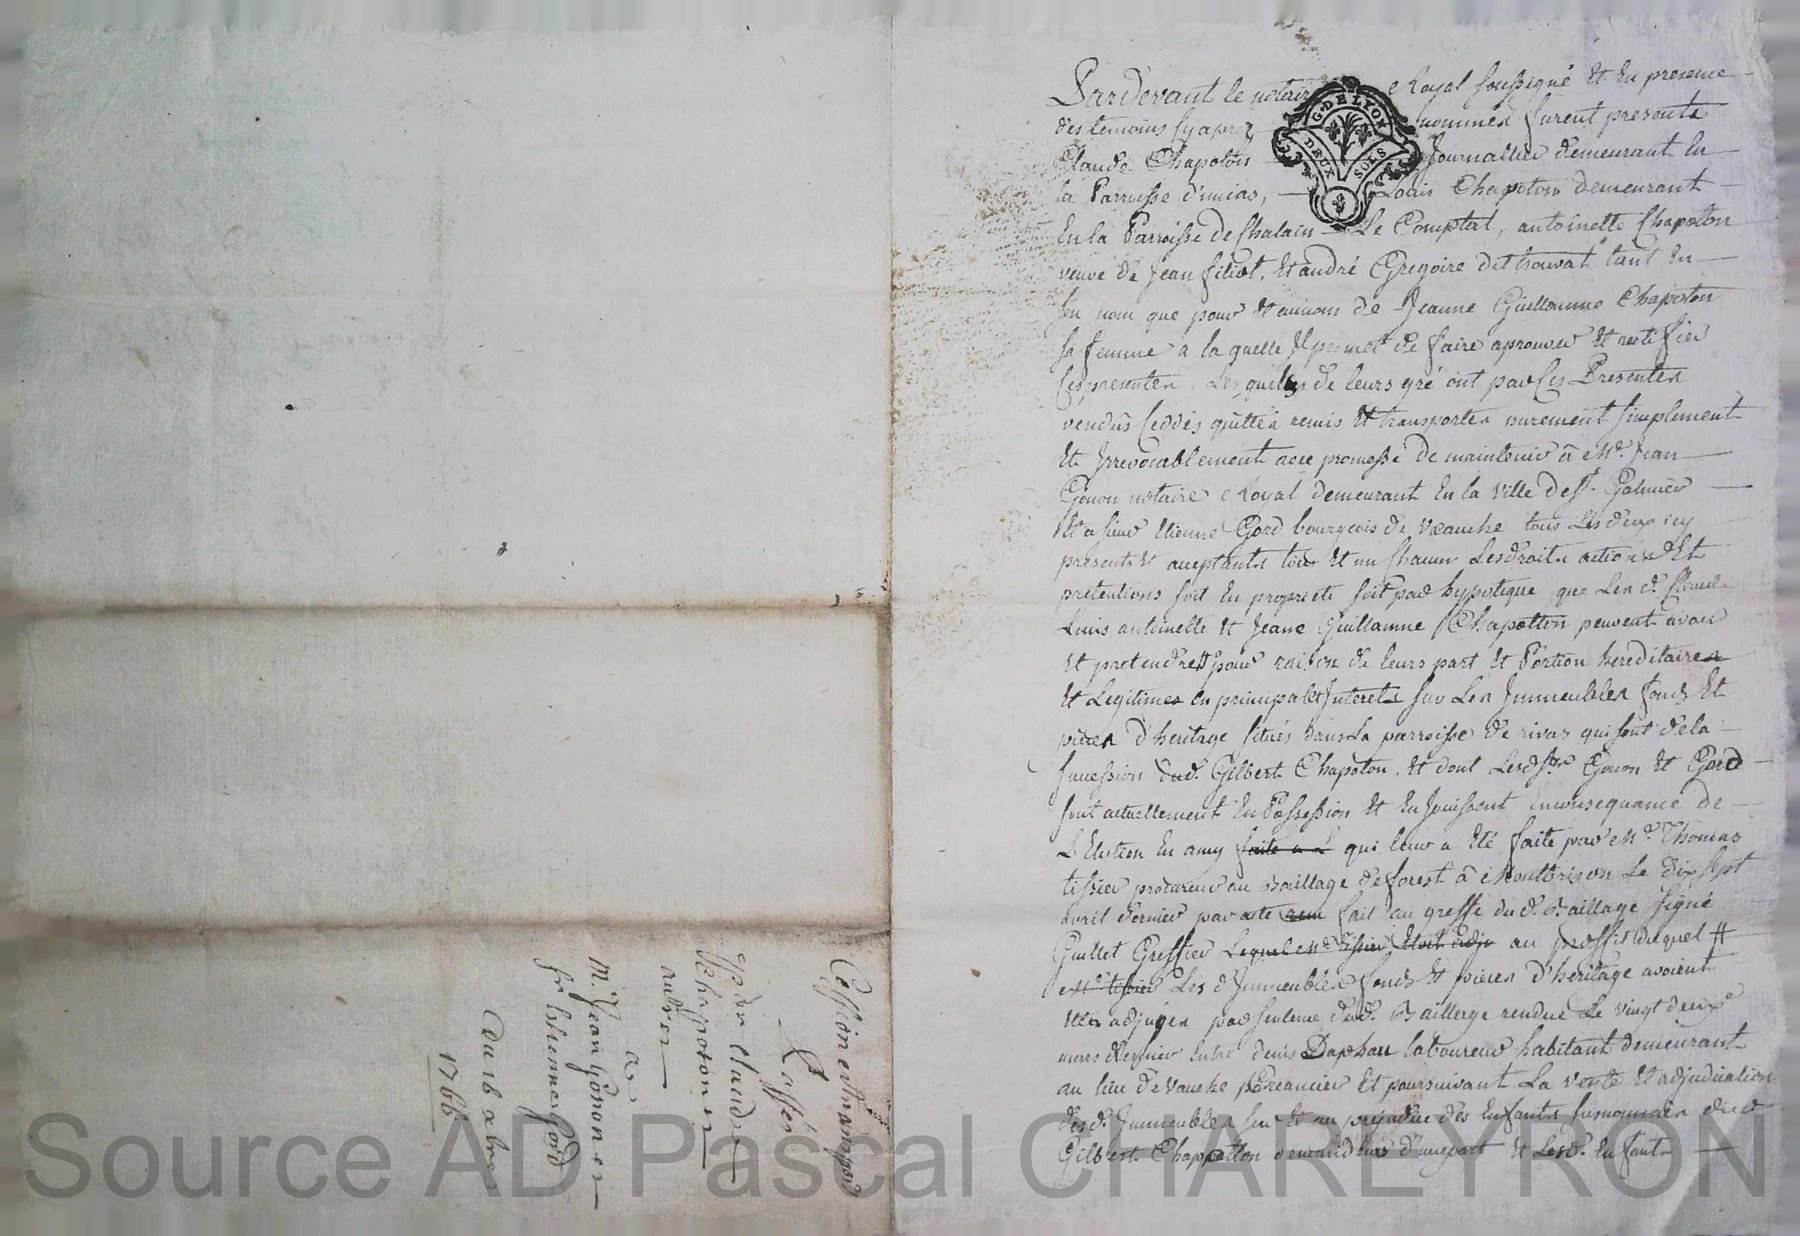 Pardevant le notaire Royal soussigné Et En presence
des temoins Cyaprez nommés furent presents
Claude Chapoton Journallier demeurant En
la Parroisse d'unias, Louis Chapoton demeurant
En la Parroisse de Chalain Le Comptal, antoinette Chapoton
veuve de Jean filiot, Et andré Gregoire dit tant En
son nom que pour Et aunom de Jeanne Guillaume Chapoton
sa femme a la quelle Il promet de faire aprouver Et ratifier
Ces presentes, Lesquels de leurs gré ont par Ces Presentes
vendûs Ceddés quittés remis Et transportés purement simplement
Et Irrevocablement avec promesse de maintenir à Me. Jean
Gonon notaire Royal demeurant En la ville de St. Galmier
Et a sieur Etienne Gord bourgeois de Veauche tous Les deux icy
presents Et acceptants tous Et un Chacun Les droits actions Et
pretentions soit En proprieté soit par hypoteque que Les d. Claude
Louis antoinette Et Jeane Guillaume Chapotton peuvent avoir
Et pretendre pour raison de leurs part Et Portion hereditaires
Et Legitimes En principal Et Interets sur Les Immeubles fonds Et
pieces d'heritage situés dans La parroisse de rivas qui sont de la
succession dud. Gilbert Chapoton, Et dont Lesd. srs Gonon Et Gord
sont actuellement En Possession Et En Jouissent En consequance de
L'Election En amy faite a L qui leur a Eté faite par Me. Thomas
tissier procureur au Baillage de forest à Montbrison Le dix sept
avril dernier par acte fait au greffe dud. Baillage signé
Guillet Greffier Lequel Me. tissier Etoit adju au proffit duquel #
Me. tissier Les d. Immeubles fonds Et pieces d'heritage avoient
Etés adjugés par sentence dud. Baillage rendue Le vingt deux
mars dernier Entre denis Daphau laboureur habitant demeurant
au lieu de Vauche poursuivant La vente Et adjudication
desd. Immeubles sur Et au prejudice des Enfants dud.
Gilbert Chapotton demandeur d'unepart Et Lesd. Enfants
Cession et transport
Passés
par Claude
Chapoton et
autres
a
Me. Jean Gonon et
Sr Estienne Gord
Du 16 abre
1766
G. DE LYON
DEUX SOLS
Source AD Pascal CHAREYRON